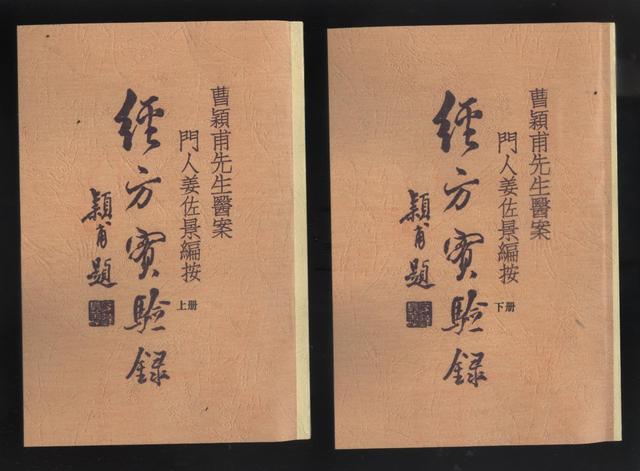 曹穎甫先生醫案
門人姜佐景編按
上册
經方實驗録
穎甫題
曹穎甫先生醫案
門人姜佐景編按
下册
經方實驗録
穎甫題